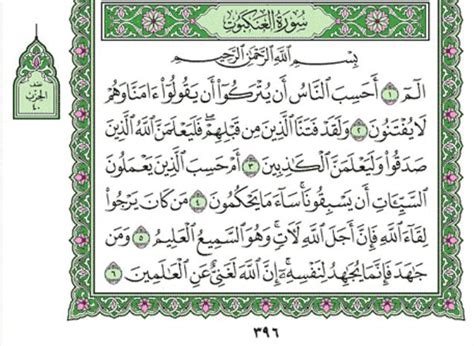 سُورَةُ العَنكَبُوتِ
بِسْمِ ٱللَّهِ ٱلرَّحْمَٰنِ ٱلرَّحِيمِ
الٓمٓ ١ أَحَسِبَ ٱلنَّاسُ أَن يُتْرَكُوٓا۟ أَن يَقُولُوٓا۟ ءَامَنَّا وَهُمْ
لَا يُفْتَنُونَ ٢ وَلَقَدْ فَتَنَّا ٱلَّذِينَ مِن قَبْلِهِمْ ۖ فَلَيَعْلَمَنَّ ٱللَّهُ ٱلَّذِينَ
صَدَقُوا۟ وَلَيَعْلَمَنَّ ٱلْكَٰذِبِينَ ٣ أَمْ حَسِبَ ٱلَّذِينَ يَعْمَلُونَ
ٱلسَّيِّـَٔاتِ أَن يَسْبِقُونَا ۚ سَآءَ مَا يَحْكُمُونَ ٤ مَن كَانَ يَرْجُوا۟
لِقَآءَ ٱللَّهِ فَإِنَّ أَجَلَ ٱللَّهِ لَـَٔاتٍ ۚ وَهُوَ ٱلسَّمِيعُ ٱلْعَلِيمُ ٥ وَمَن
جَٰهَدَ فَإِنَّمَا يُجَٰهِدُ لِنَفْسِهِۦٓ ۚ إِنَّ ٱللَّهَ لَغَنِىٌّ عَنِ ٱلْعَٰلَمِينَ ٦
نصف
الحزب
٤٠
٣٩٦